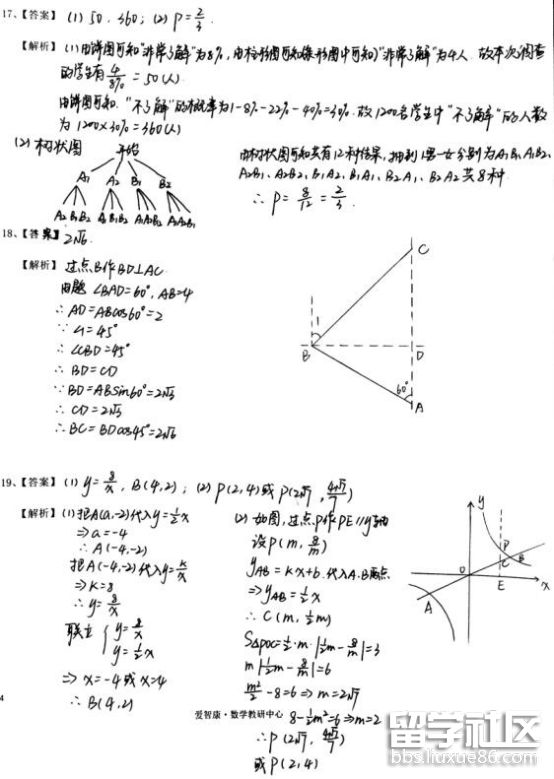 17、【答案】(1) 50, 360; (2) P=2/3.
【解析】(1)由饼图可知"非常了解"为8%, 由柱形图可知(条形图中可知)"非常了解"为4人, 故本次调查
的学生有4/8%=50(人)
由饼图可知, "不了解"的概率为1-8%-22%-40%=30%, 故1200名学生中"不了解"的人数
为1200×30%=360(人)
(2) 树状图
开始
A1 A2 B1 B2
A2 B1 B2 A1 B1 B2 A1 A2 B2 A1 A2 B1
由树状图可知共有12种结果, 抽到1男一女分别为A1B1、A1B2、
A2B1、A2B2、B1A2、B1A1、B2A1、B2A2共8种
∴P=8/12=2/3.
18、【答案】2√6.
【解析】过点B作BD⊥AC
由题∠BAD=60°, AB=4
∴AD=ABcos60°=2
∵∠1=45°
∴∠CBD=45°
∴BD=CD
∵BD=ABsin60°=2√3
∴CD=2√3
∴BC=BDcos45°=2√6
C
1
B
D
60°
A
19、【答案】(1) y=8/x, B(4,2); (2) P(2,4)或P(2√7, 4√7/7)
【解析】(1)把A(a,-2)代入y=1/2x
⇒a=-4
∴A(-4,-2)
把A(-4,-2)代入y=k/x
⇒k=8
∴y=8/x
联立 { y=8/x
y=1/2x
⇒x=-4或x=4
∴B(4,2)
(2) 如图, 过点P作PE//y轴
设P(m, 8/m)
yAB=kx+b, 代入A、B两点
⇒yAB=1/2x
∴C(m, 1/2m)
S△POC=1/2·m·|1/2m-8/m|=3
m|1/2m-8/m|=6
m²/2-8=6⇒m=2√7
8-1/2m²=6⇒m=2
∴P(2√7, 4√7/7)
或P(2,4)
y
P
C
B
O
E
x
A
4
爱智康·数学教研中心
留学社区
bbs.liuxue86.com